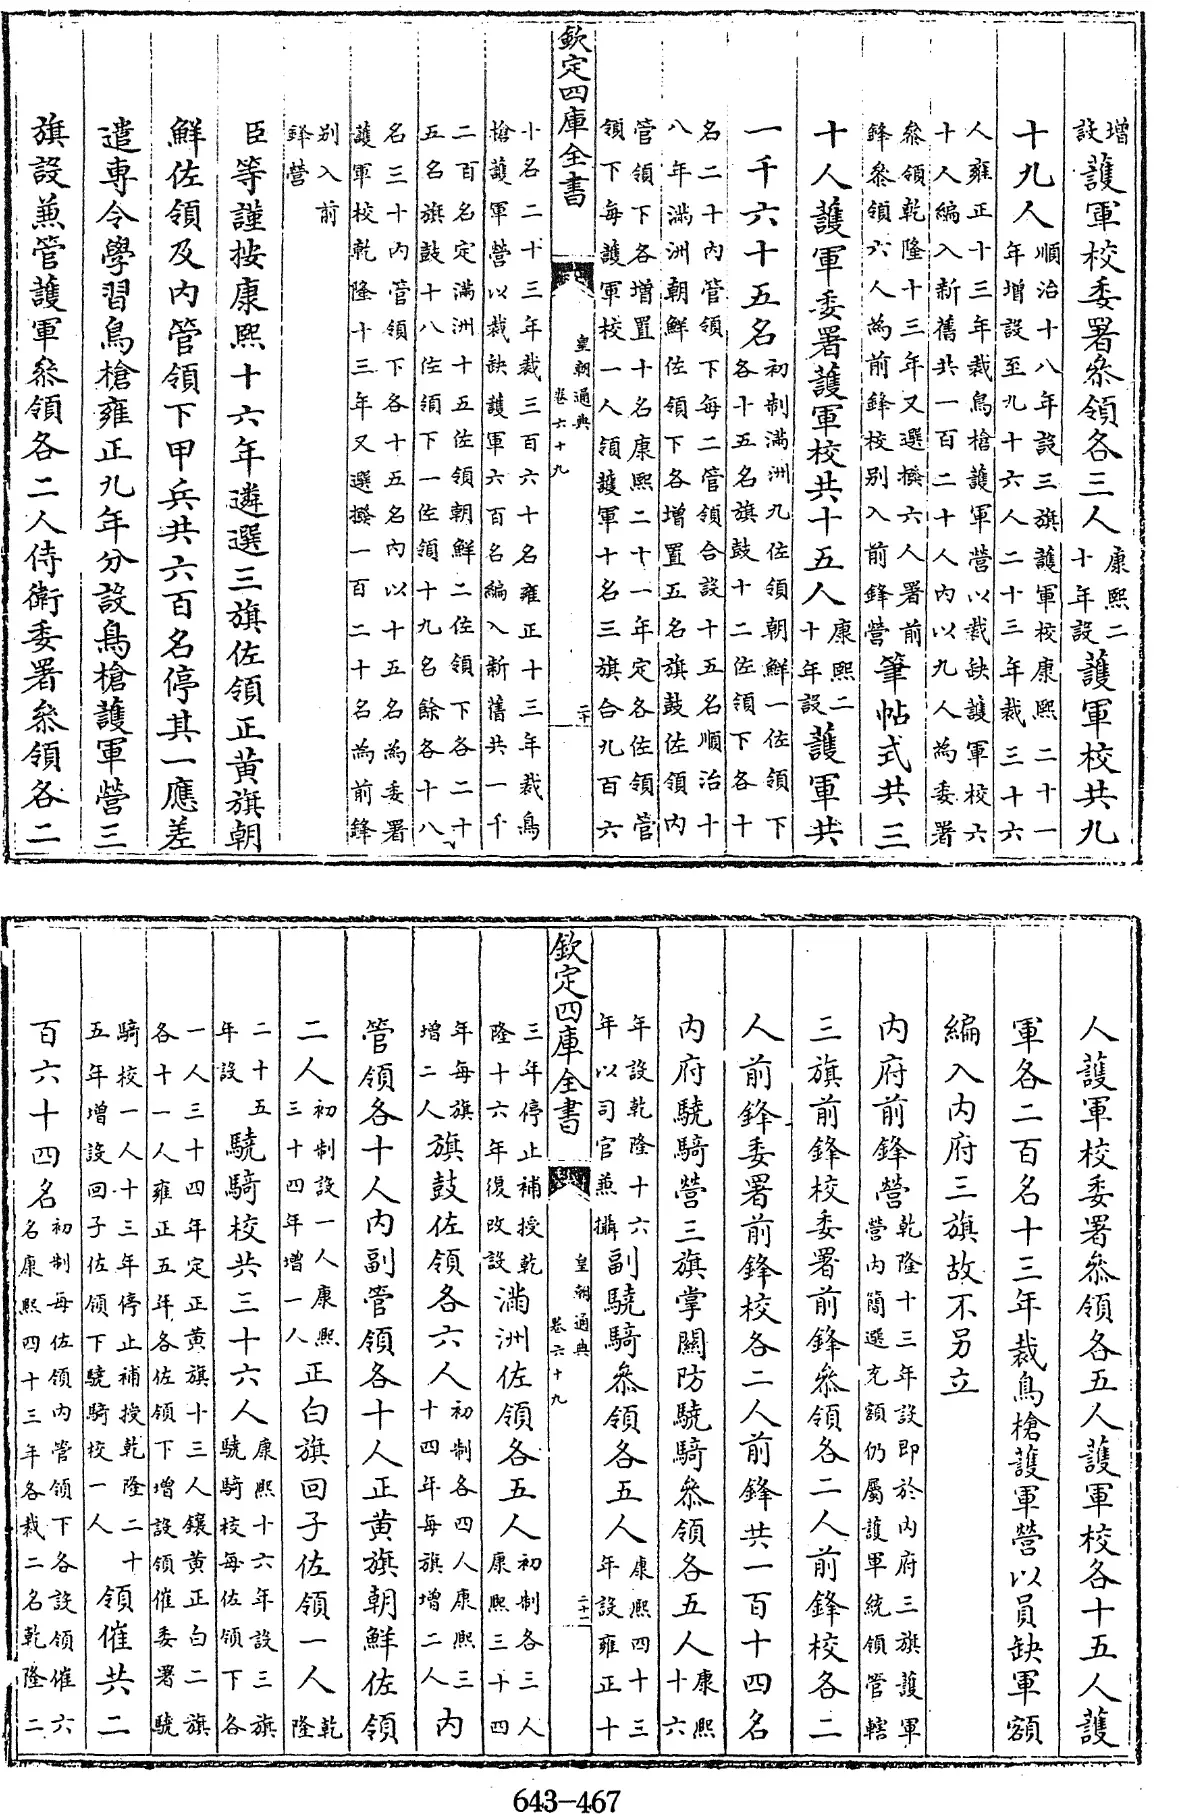 增設護軍校委署叅領各三人康熙二十年設護軍校共九
十九人順治十八年設三旗護軍校康熙二十一年增設至九十六人二十三年裁三十六
人雍正十三年裁鳥槍護軍營以裁缺護軍校六十人編入新舊共一百二十人內以九人為委署
叅領乾隆十三年又選撥六人署前鋒叅領六人為前鋒校别入前鋒營筆帖式共三
十人護軍委署護軍校共十五人康熙二十年設護軍共
一千六十五名初制滿洲九佐領朝鮮一佐領下各十五名旗鼓十二佐領下各十
名二十內管領下每二管領合設十五名順治十八年滿洲朝鮮佐領下各增置五名旗鼓佐領內
管領下各增置十名康熙二十一年定各佐領管領下每護軍校一人領護軍十名三旗合九百六
欽定四庫全書
皇朝通典
卷六十九
二十
十名二十三年裁三百六十名雍正十三年裁鳥槍護軍營以裁缺護軍六百名編入新舊共一千
二百名定滿洲十五佐領朝鮮二佐領下各二十五名旗鼓十八佐領下一佐領十九名餘各十八
名三十內管領下各十五名內以十五名為委署護軍校乾隆十三年又選撥一百二十名為前鋒
别入前鋒營
臣等謹按康熙十六年遴選三旗佐領正黃旗朝
鮮佐領及內管領下甲兵共六百名停其一應差
遣專令學習鳥槍雍正九年分設鳥槍護軍營三
旗設兼管護軍叅領各二人侍衛委署叅領各二
人護軍校委署叅領各五人護軍校各十五人護
軍各二百名十三年裁鳥槍護軍營以員缺軍額
編入內府三旗故不另立
內府前鋒營乾隆十三年設即於內府三旗護軍營內簡選充額仍屬護軍統領管轄
三旗前鋒校委署前鋒叅領各二人前鋒校各二
人前鋒委署前鋒校各二人前鋒共一百十四名
內府驍騎營三旗掌關防驍騎叅領各五人康熙十六
年設乾隆十六年以司官兼攝副驍騎叅領各五人康熙四十三年設雍正十
欽定四庫全書
皇朝通典
卷六十九
二十一
三年停止補授乾隆十六年復改設滿洲佐領各五人初制各三人康熙三十四
年每旗增二人旗鼓佐領各六人初制各四人康熙三十四年每旗增二人內
管領各十人內副管領各十人正黃旗朝鮮佐領
二人初制設一人康熙三十四年增一人正白旗回子佐領一人乾隆
二十五年設驍騎校共三十六人康熙十六年設三旗驍騎校每佐領下各
一人三十四年定正黃旗十三人鑲黃正白二旗各十一人雍正五年各佐領下增設領催委署驍
騎校一人十三年停止補授乾隆二十五年增設回子佐領下驍騎校一人領催共二
百六十四名初制每佐領內管領下各設領催六名康熙四十三年各裁二名乾隆二
643-467